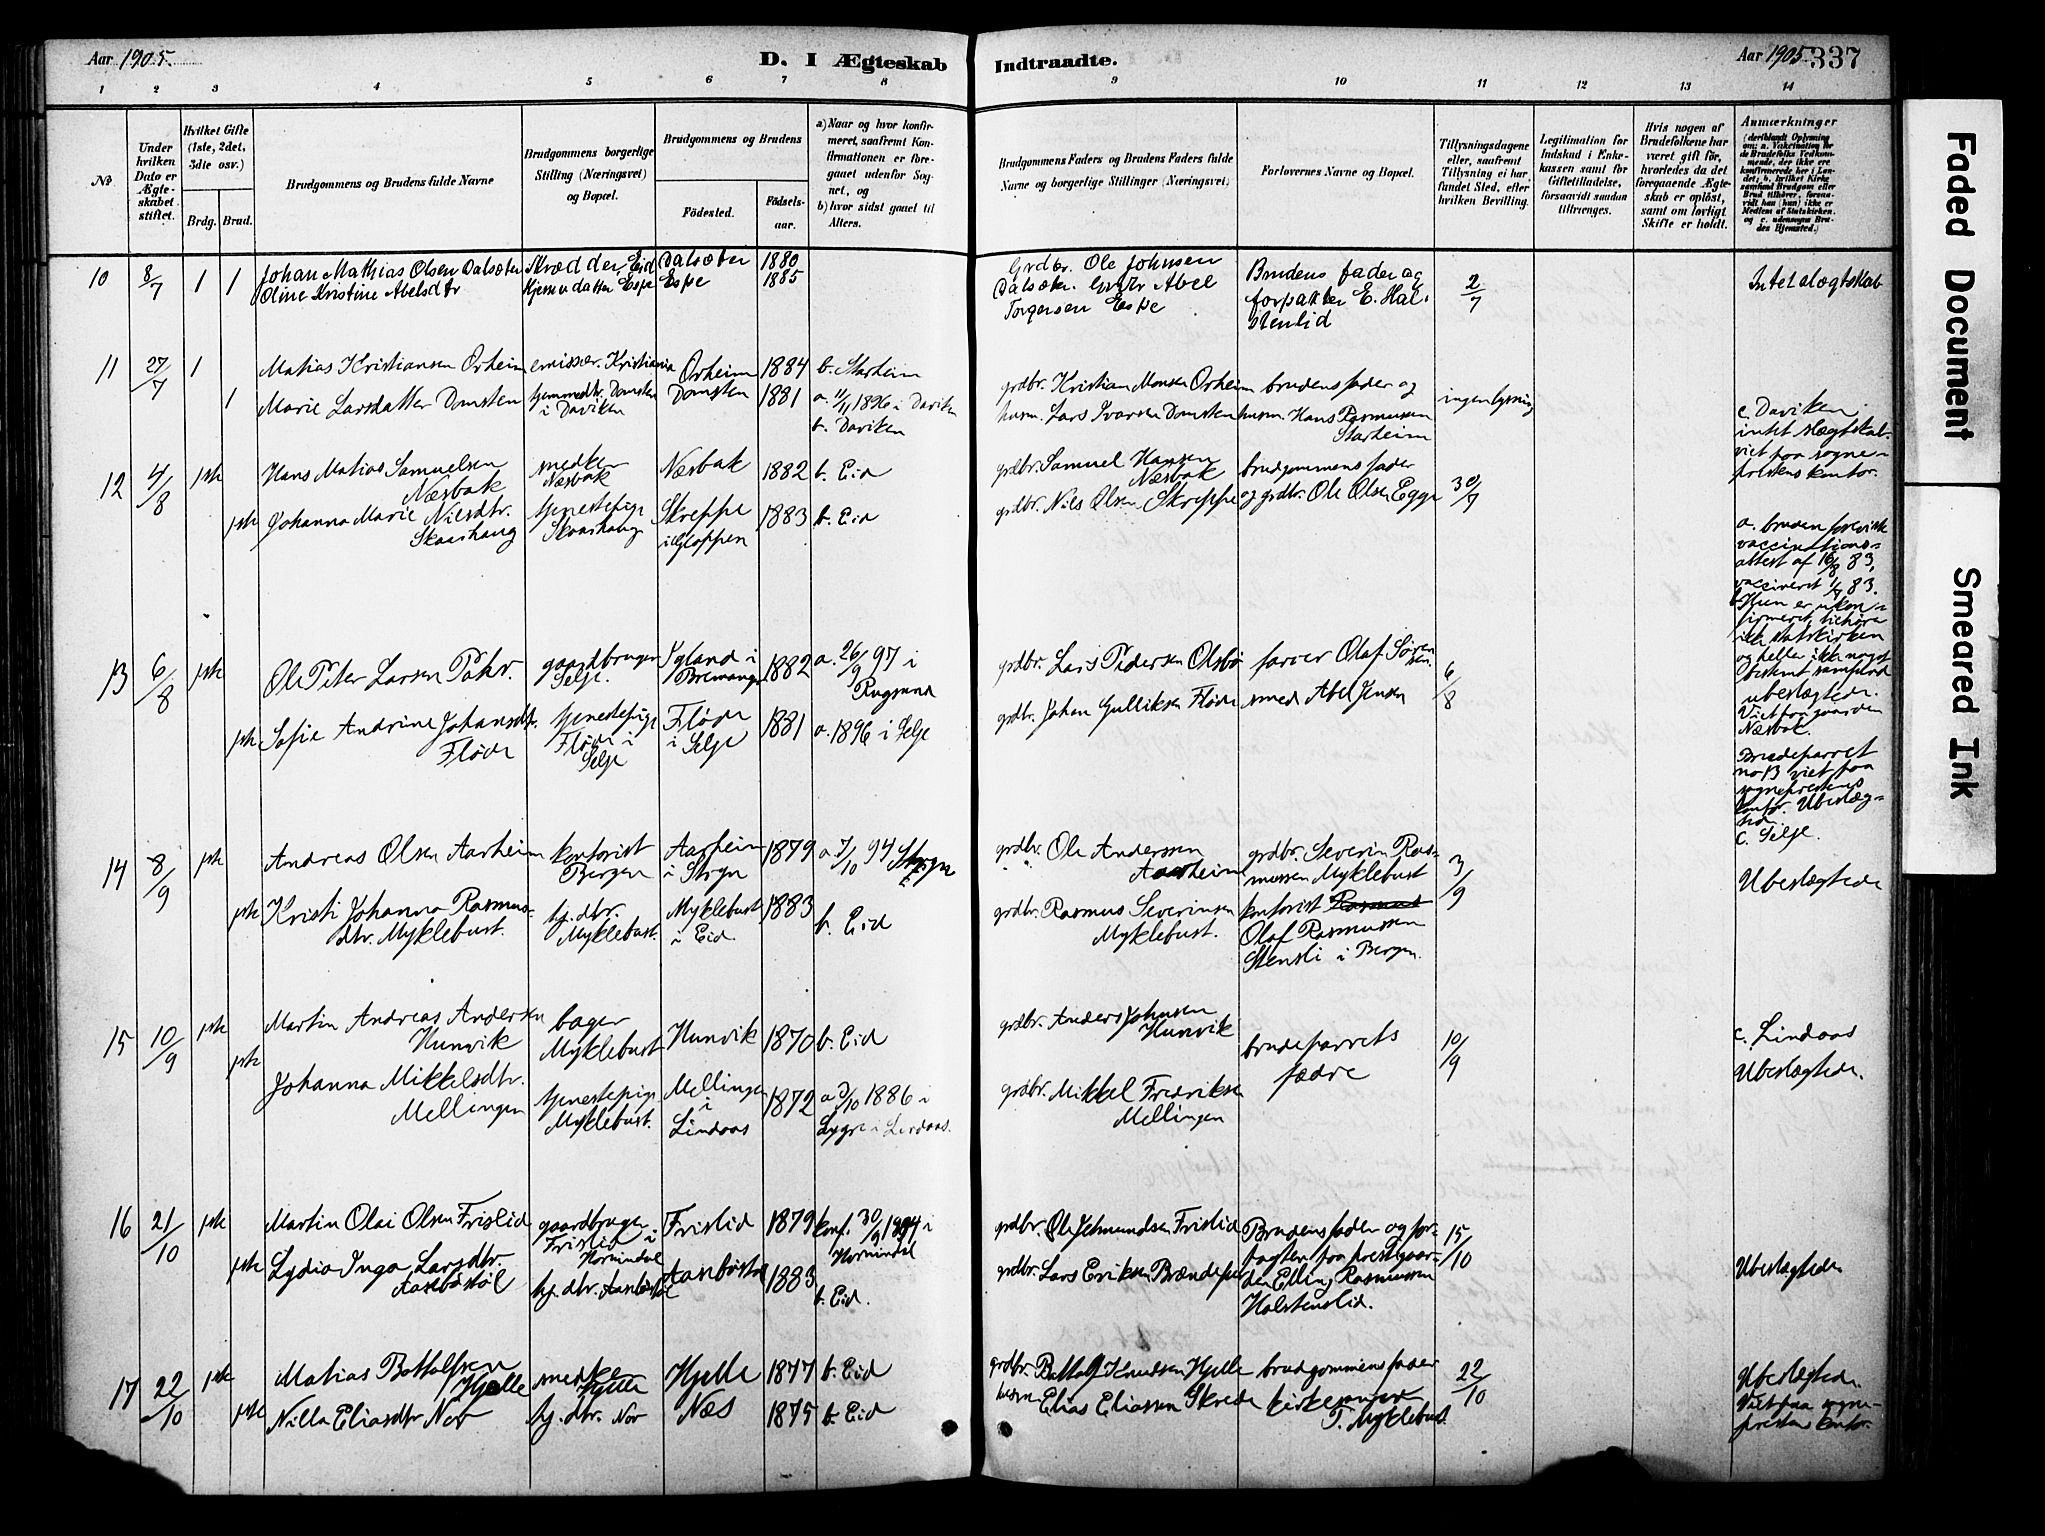 Aar 1905.
D. I Ægteskab
Indtraadte.
Aar 1905
337
1 2 3 4 5 6 7 8
9 10 11 12 13 14
No
Under hvilken Dato er Ægteskabet stiftet.
Hvilket Gifte (1ste, 2det, 3die osv.)
Brdg. Brud.
Brudgommens og Brudens fulde Navne
Brudgommens borgerlige Stilling (Næringsvei) og Bopæl.
Brudgommens og Brudens
Födested.
Födsels-aar.
a) Naar og hvor konfirmeret, saafremt Konfirmationen er foregaaet udenfor Sognet, og
b) hvor sidst gaaet til Alters.
Brudgommens Faders og Brudens Faders fulde Navne og borgerlige Stillinger (Næringsvei)
Forlovernes Navne og Bopæl.
Tillysningsdagene eller, saafremt Tillysning ei har fundet Sted, efter hvilken Bevilling.
Legitimation for Indskud i Enkekassen samt for Giftetilladelse, forsaavidt saadan tiltrænges.
Hvis nogen af Brudefolkene har været gift för, hvorledes da det foregaaende Ægteskab er oplöst, samt om lovligt Skifte er holdt.
Anmærkninger
10 8/7 1 1 Johan Mathias Olsen Dalsæter Skrædder, Eid Dalsæter 1880
Oline Kristine Abelsdtr Hjemmedatter Espe Espe 1885
Grdbr. Ole Johnsen
Dalsæter. Grdbr Abel
Torgersen Espe
Brudens fader og
forpakter E. Hal-
stenlid
2/7
Intet slægtskab
11 27/7 1 Matias Kristiansen Orheim emissær. Kristiania Orheim 1884 b. Starheim
1 Marie Larsdatter Domsten hjemmedtr. Domsten i Daviken Domsten 1881 a. 11/11 1896 i Daviken
b. Daviken
grdbr. Kristian Monsen Orheim brudens fader og
husm. Lars Ivarsen Domsten husm. Hans Rasmussen
Starheim
ingen lysning
c. Daviken
intet slægtskab.
viet paa sogne-
prestens kontor.
12 4/8 1ste Hans Matias Samuelsen
Næsbak
smed
Næsbak
Næsbak 1882 b. Eid
1ste Johanna Marie Nilsdtr.
Skaashaug
tjenestepige
Skaashaug
Skreppe
i Gloppen
1883 b. Eid
grdbr. Samuel Hansen
Næsbak
brudgommens fader
grdbr. Nils Olsen Skreppe og grdbr. Ole Olsen Egge
30/7
a. bruden foreviste
vaccinations-
attest af 16/8 83,
vaccineret 1/7 83.
b. Hun er ukon-
firmeret, tilhører
ikke statskirken
og heller ikke noget
bestemt samfund
ubeslægtede.
Viet paa gaarden
Næsbak.
13 6/8 1ste Ole Peter Larsen Pahr.
gaardbruger
Selje.
Igland i
Bremanger
1882
a. 26/9 97 i
Rugsund
1ste Sofie Andrine Johansdtr.
Fløde
tjenestepige
Fløde i
Selje
Fløde
i Selje
1881 a. 1896 i Selje
grdbr. Lars Pedersen Olsbø farver Olaf Sørensen
grdbr. Johan Gulliksen Fløde smed Abel Jensen
6/8
Brudeparret
no 13 viet paa
sogneprestens
kontor. Ubeslæg-
tede.
c. Selje.
14 8/9 1ste Andreas Olsen Aarheim
kontorist
Bergen
Aarheim
i Stryn
1879 a 7/10 94 Stryn
1ste Kristi Johanna Rasmus-
dtr. Myklebust.
hj. dtr.
Myklebust.
Myklebust
i Eid.
1883 b. Eid
grdbr. Ole Andersen
Aarheim
grdbr. Rasmus Severinsen
Myklebust.
grdbr. Severin Ras-
mussen Myklebust
kontorist Rasmus
Olaf Rasmussen
Stensli i Bergen.
3/9
Ubeslægtede
15 10/9 1ste Martin Andreas Andersen
Hunvik
bager
Myklebust
Hunvik 1870 b. Eid
1ste Johanna Mikkelsdtr.
Mellingen
tjenestepige
Myklebust.
Mellingen
i
Lindaas
1872 a 3/10 1886 i
Lygre i Lindaas.
grdbr. Anders Johnsen
Hunvik
grdbr. Mikkel Fredriksen
Mellingen
brudeparrets
fædre
10/9
c. Lindaas
Ubeslægtede.
16 21/10 1ste Martin Olai Olsen Frislid
gaardbruger
Frislid i
Hornindal
Frislid 1879
konf. 30/9 1894 i
Hornindal
1ste Lydia Inga Larsdtr.
Aasebøstøl
hj. dtr. Aasebøstøl Aasebøstøl 1883
b. Eid.
grdbr. Ole Jetmundsen Frislid
grdbr. Lars Eriksen Brændeseter
Brudens fader og for-
pagter paa prestegaar-
den Elling Rasmussen
Holstenslid.
15/10
Ubeslægtede
17 22/10 1ste Matias Bottolfsen
Hjelle
smed
Hjelle
Hjelle 1877 b. Eid
1ste Nilla Eliasdtr Nor hj. dtr. Nor Næs 1875 b. Eid
grdbr. Bottolf Knudsen Hjelle brudgommens fader
husm. Elias Eliassen Skrede kirkesanger
T. Myklebust.
22/10
Ubeslægtede.
Viet paa sogne-
prestens kontor.
Faded Document
Smeared Ink